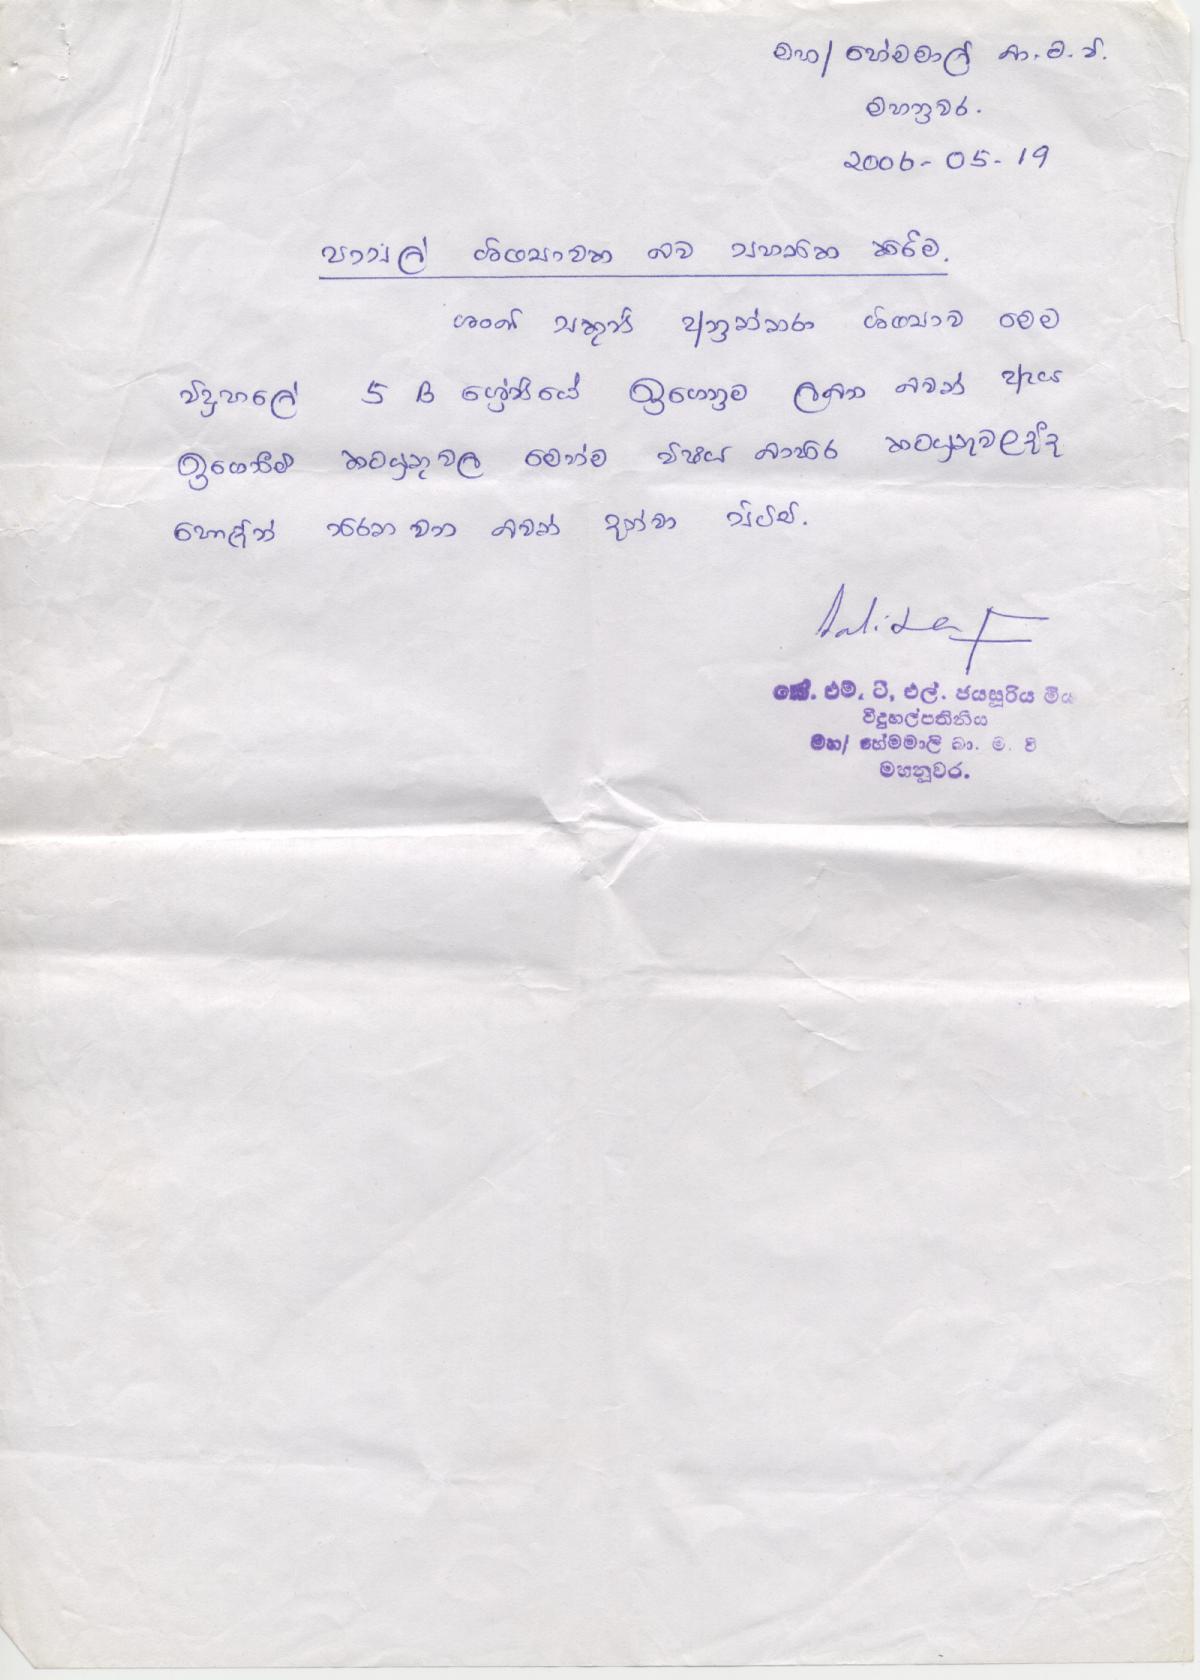 මහ/ හේමමාලි බා. ම. වි.
මහනුවර.
2006-05-19
පාසල් ශිෂ්‍යාවක බව සහතික කිරීම.
සකුනි අනුත්තරා ශිෂ්‍යාව මෙම
විදුහලේ 5 B ශ්‍රේණියේ ඉගෙනුම ලබන බවත් ඇය
ඉගෙනීම් කටයුතුවල මෙන්ම විෂය බාහිර කටයුතුවලද
හොඳින් නිරත වන බවත් දන්වා සිටිමි.
කේ. එම්. ටී. එල්. ජයසූරිය මිය
විදුහල්පතිනිය
මහ/ හේමමාලි බා. ම. වි
මහනුවර.